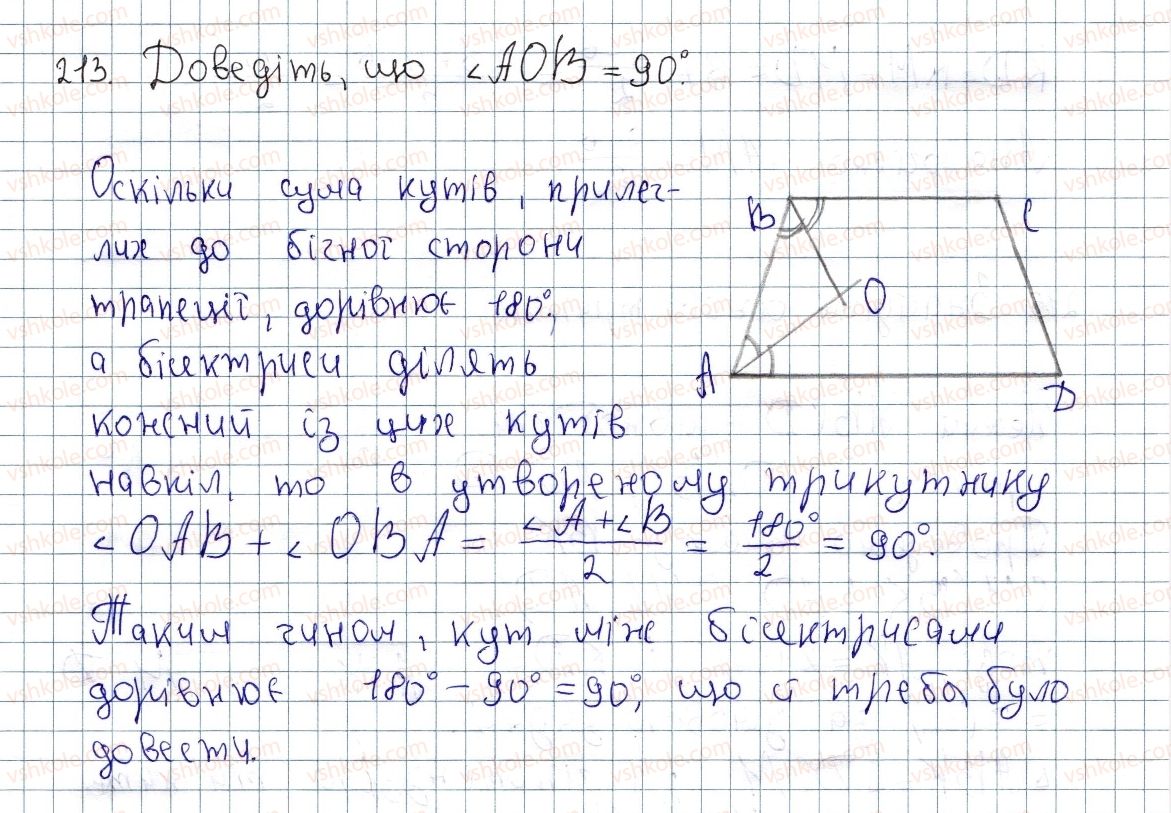 213. Доведіть, що ∠AOB = 90°.
Оскільки сума кутів, прилег-
лих до бічної сторони
трапеції, дорівнює 180°,
а бісектриси ділять
кожний із цих кутів
навкіл, то в утвореному трикутнику
∠OAB + ∠OBA = (∠A + ∠B)/2 = 180°/2 = 90°.
Таким чином, кут між бісектрисами
дорівнює 180° – 90° = 90°, що й треба було
довести.
B
C
O
A
D
vshkole.com